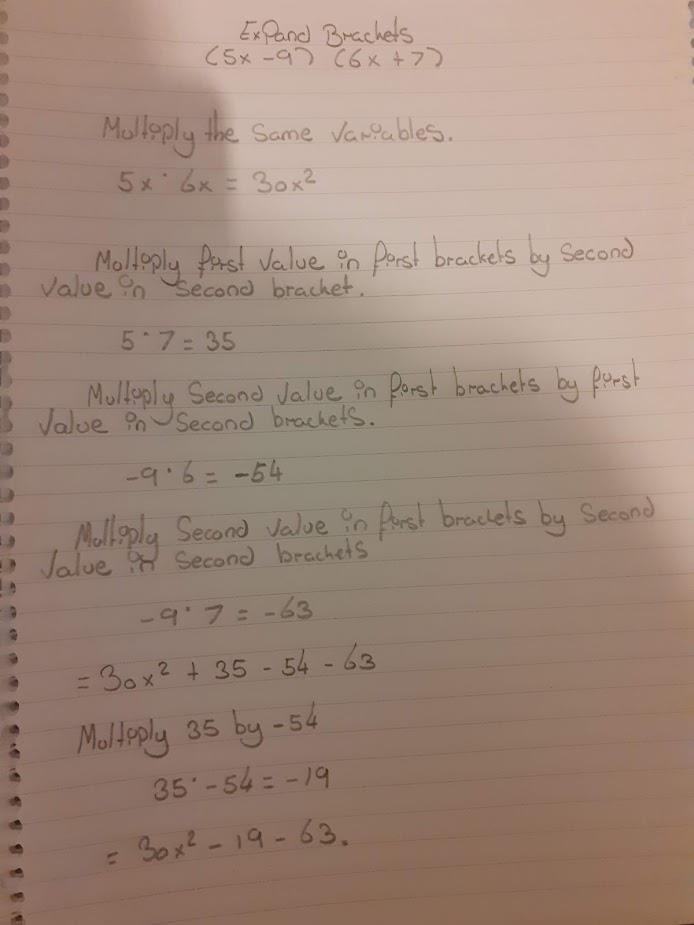 Expand Brackets
(5x - 9) (6x + 7)
Multiply the same variables.
5x · 6x = 30x²
Multiply first value in first brackets by second
value in second bracket.
5 · 7 = 35
Multiply second value in first brackets by first
value in second brackets.
-9 · 6 = -54
Multiply second value in first brackets by second
value in second brackets
-9 · 7 = -63
= 30x² + 35 - 54 - 63
Multiply 35 by -54
35 · -54 = -19
= 30x² - 19 - 63.